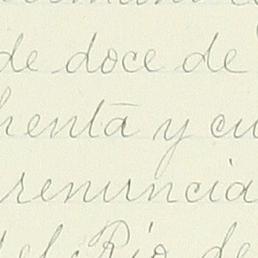 de doce de
henta y cu
renuncia
el Río de